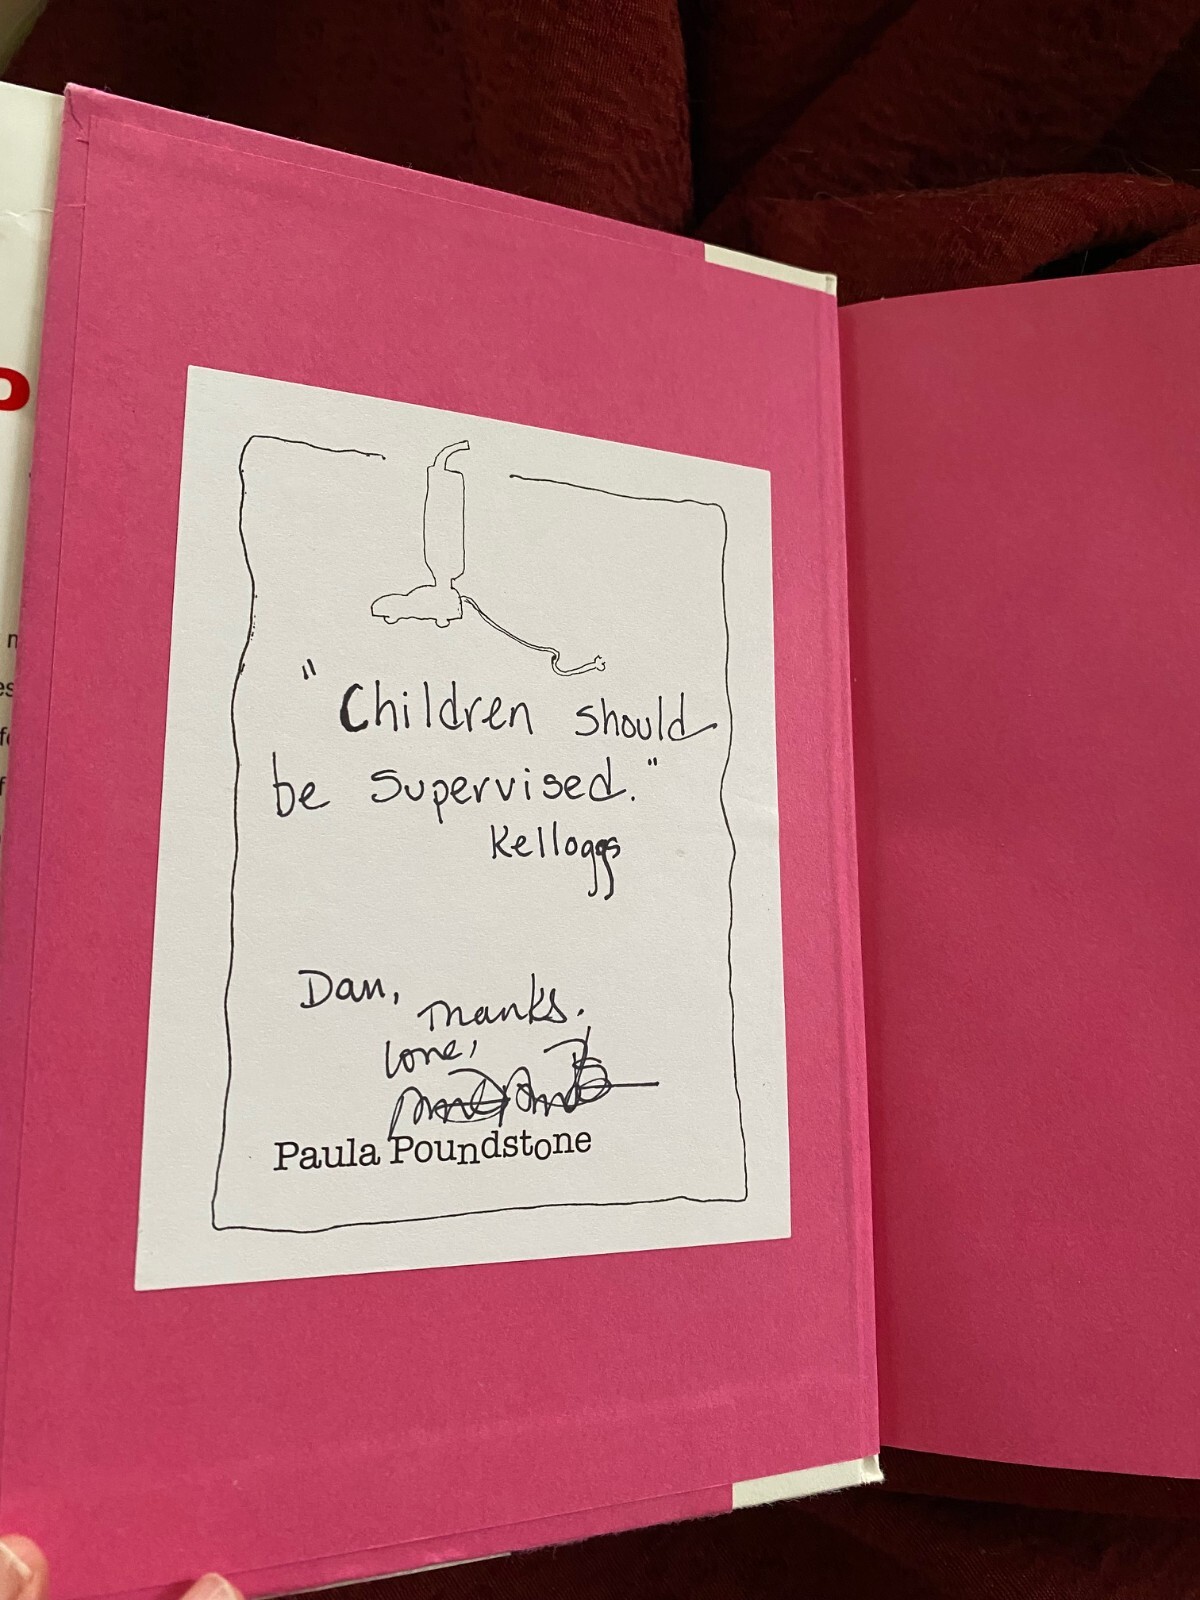 "Children should
be supervised."
Kelloggs
Dan,
Thanks.
Love,
Paula Poundstone